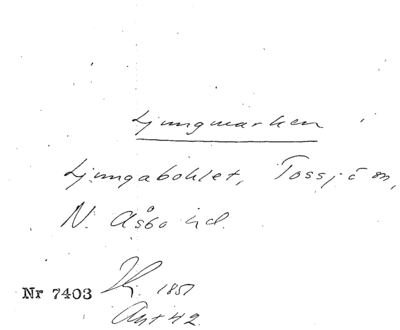 Ljungmarken
Ljungabohlet, Tossjö sn,
N. Åsbo hd.
Nr 7403 1851
Ant 42